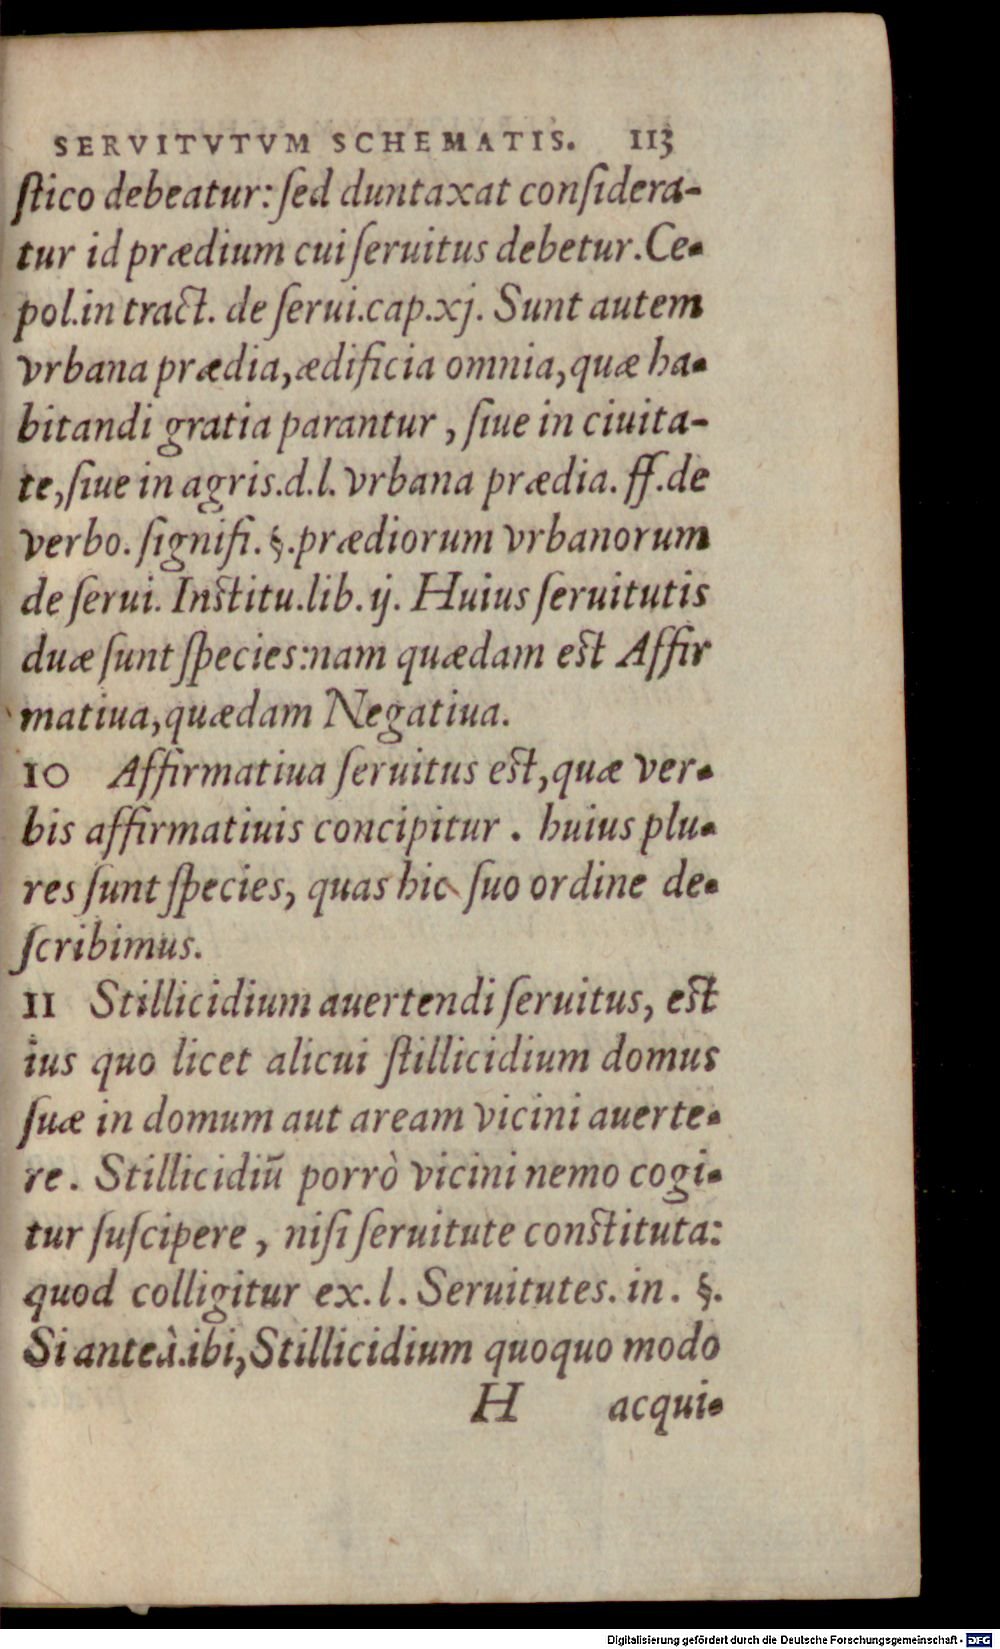 SERVITVTVM SCHEMATIS. 113
ſtico debeatur: ſed duntaxat conſidera-
tur id prædium cui ſeruitus debetur. Ce-
pol. in tract. de ſerui. cap. xj. Sunt autem
vrbana prædia, ædificia omnia, quæ ha-
bitandi gratia parantur, ſiue in ciuita-
te, ſiue in agris. d. l. vrbana prædia. ff. de
verbo. ſignifi. §. prædiorum vrbanorum
de ſerui. Inſtitu. lib. ij. Huius ſeruitutis
duæ ſunt ſpecies: nam quædam eſt Affir
matiua, quædam Negatiua.
10 Affirmatiua ſeruitus eſt, quæ ver-
bis affirmatiuis concipitur. huius plu-
res ſunt ſpecies, quas hic ſuo ordine de-
ſcribimus.
11 Stillicidium auertendi ſeruitus, eſt
ius quo licet alicui ſtillicidium domus
ſuæ in domum aut aream vicini auerte-
re. Stillicidiũ porrò vicini nemo cogi-
tur ſuſcipere, niſi ſeruitute conſtituta:
quod colligitur ex. l. Seruitutes. in. §.
Si anteà. ibi, Stillicidium quoquo modo
H acqui-
Digitalisierung gefördert durch die Deutsche Forschungsgemeinschaft - DFG